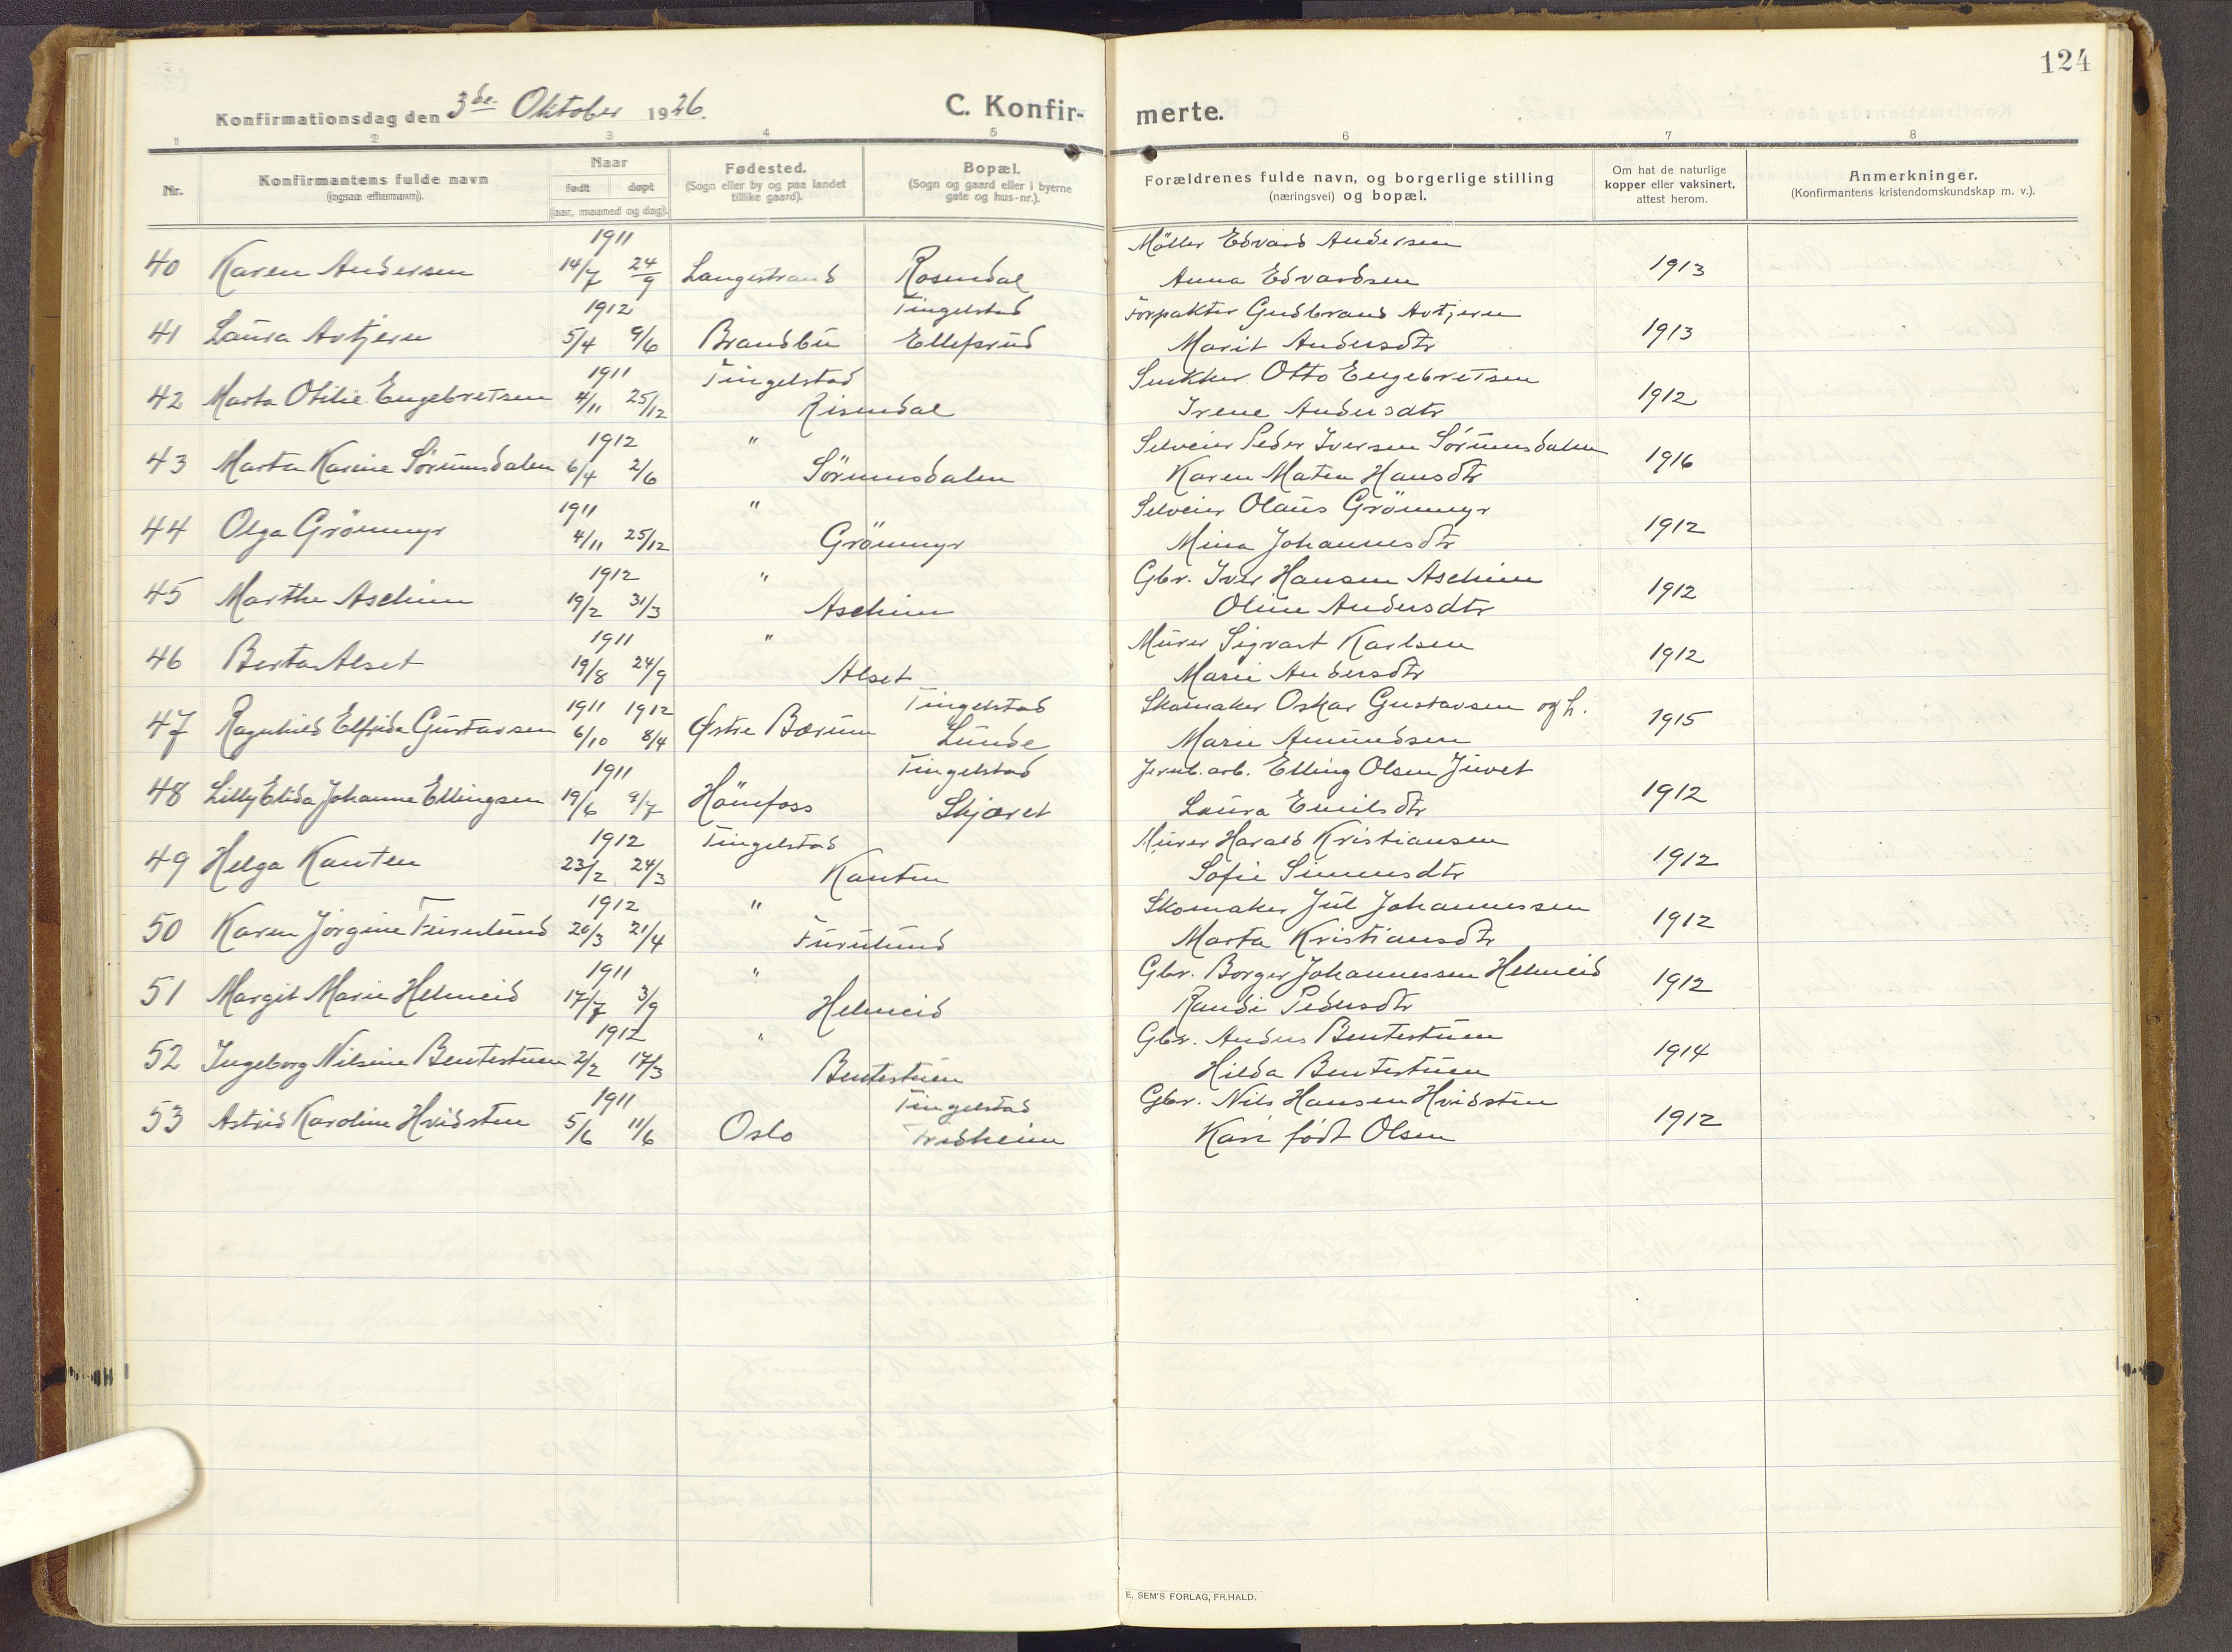 124
Konfirmationsdag den 3de Oktober 1926.
C. Konfirmerte.
1 2 3 4 5 6 7 8
Nr. Konfirmantens fulde navn (ogsaa efternavn). Naar født døpt (aar, maaned og dag). Fødested. (Sogn eller by og paa landet tillike gaard). Bopæl. (Sogn og gaard eller i byerne gate og hus-nr.). Forældrenes fulde navn, og borgerlige stilling (næringsvei) og bopæl. Om hat de naturlige kopper eller vaksinert, attest herom. Anmerkninger. (Konfirmantens kristendomskundskap m. v.).
1911 Möller Edvard Andersen
40 Karen Andersen 14/7 24/9 Langestrand Rosendal Anna Edvardsen 1913
1912 Tingelstad Forpakter Gudbrand Avtjern
41 Laura Avtjern 5/4 9/6 Brandbu Ellefsrud Marit Andersdtr 1913
1911 Tingelstad Snekker Otto Engebretsen
42 Marta Otilie Engebretsen 4/11 25/12 Risendal Irene Andersdtr 1912
1912 " Selveier Peder Iversen Sörumsdalen
43 Marta Karine Sörumsdalen 6/4 2/6 Sörumsdalen Karen Maten Hansdtr 1916
1911 " Selveier Olaus Grönmyr
44 Olga Grönmyr 4/11 25/12 Grönmyr Mina Johannesdtr 1912
1912 " Gbr. Iver Hansen Aschim
45 Marthe Aschim 19/2 31/3 Aschim Oline Andersdtr 1912
1911 " Murer Sigvart Karlsen
46 Berta Alset 19/8 24/9 Alset Marie Andersdtr 1912
1911 1912 Tingelstad Skomaker Oskar Gustavsen og h.
47 Ragnhild Elfrida Gustavsen 6/10 8/4 Østre Bærum Lunde Marie Amundsen 1915
1911 Tingelstad Jernb. arb. Elling Olsen Juvet
48 Lilly Elida Johanne Ellingsen 19/6 9/7 Hönefoss Skjæret Laura Emilsdtr 1912
1912 Tingelstad Murer Harald Kristiansen
49 Helga Kanten 23/2 24/3 Kanten Sofie Simensdtr 1912
1912 " Skomaker Jul Johannessen
50 Karen Jörgine Furulund 20/3 21/4 Furulund Marta Kristiansdtr 1912
1911 " Gbr. Borger Johannessen Helmeid
51 Margit Marie Helmeid 17/7 3/9 Helmeid Randi Pedersdtr 1912
1912 " Gbr. Anders Bentestuen
52 Ingeborg Nilsine Bentestuen 2/2 17/3 Bentestuen Hilda Bentestuen 1914
1911 Tingelstad Gbr. Nils Hansen Hvidsten
53 Astrid Karoline Hvidsten 5/6 11/6 Oslo Fredheim Kari födt Olsen 1912
E. SEM'S FORLAG, FR.HALD.